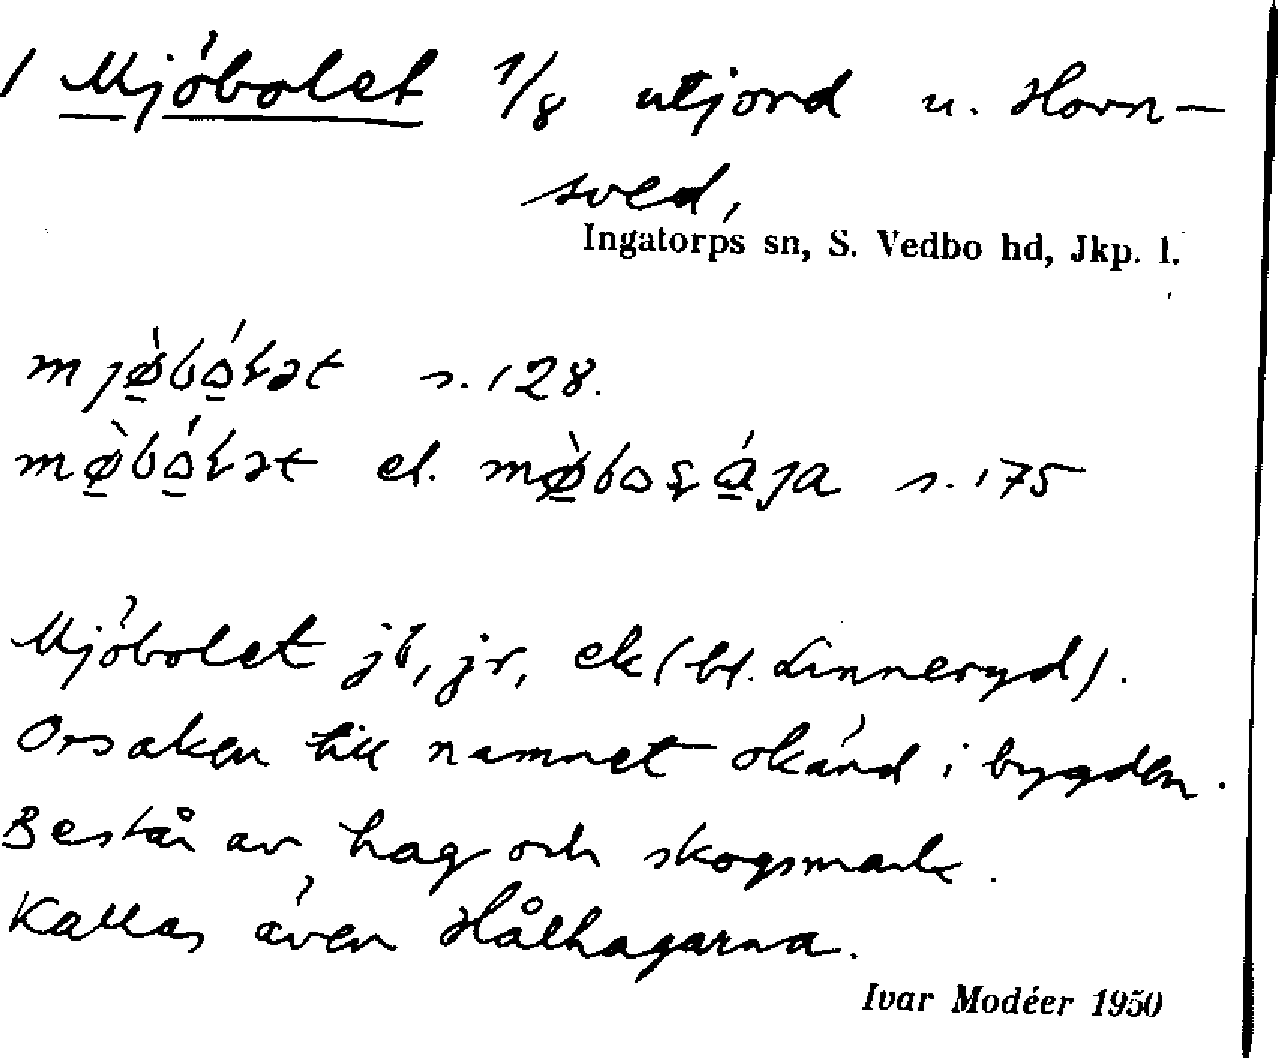 / Mjöbolet 1/8 utjord u. Horn-
sved,
Ingatorps sn, S. Vedbo hd, Jkp. l.
s. 128.
el. s. 175
Mjöbolet jb, jr, ek (bl. Linneryd).
Orsaken till namnet okänd i bygden.
Består av hag och skogsmark.
Kallas även Hålhagarna.
Ivar Modéer 1950